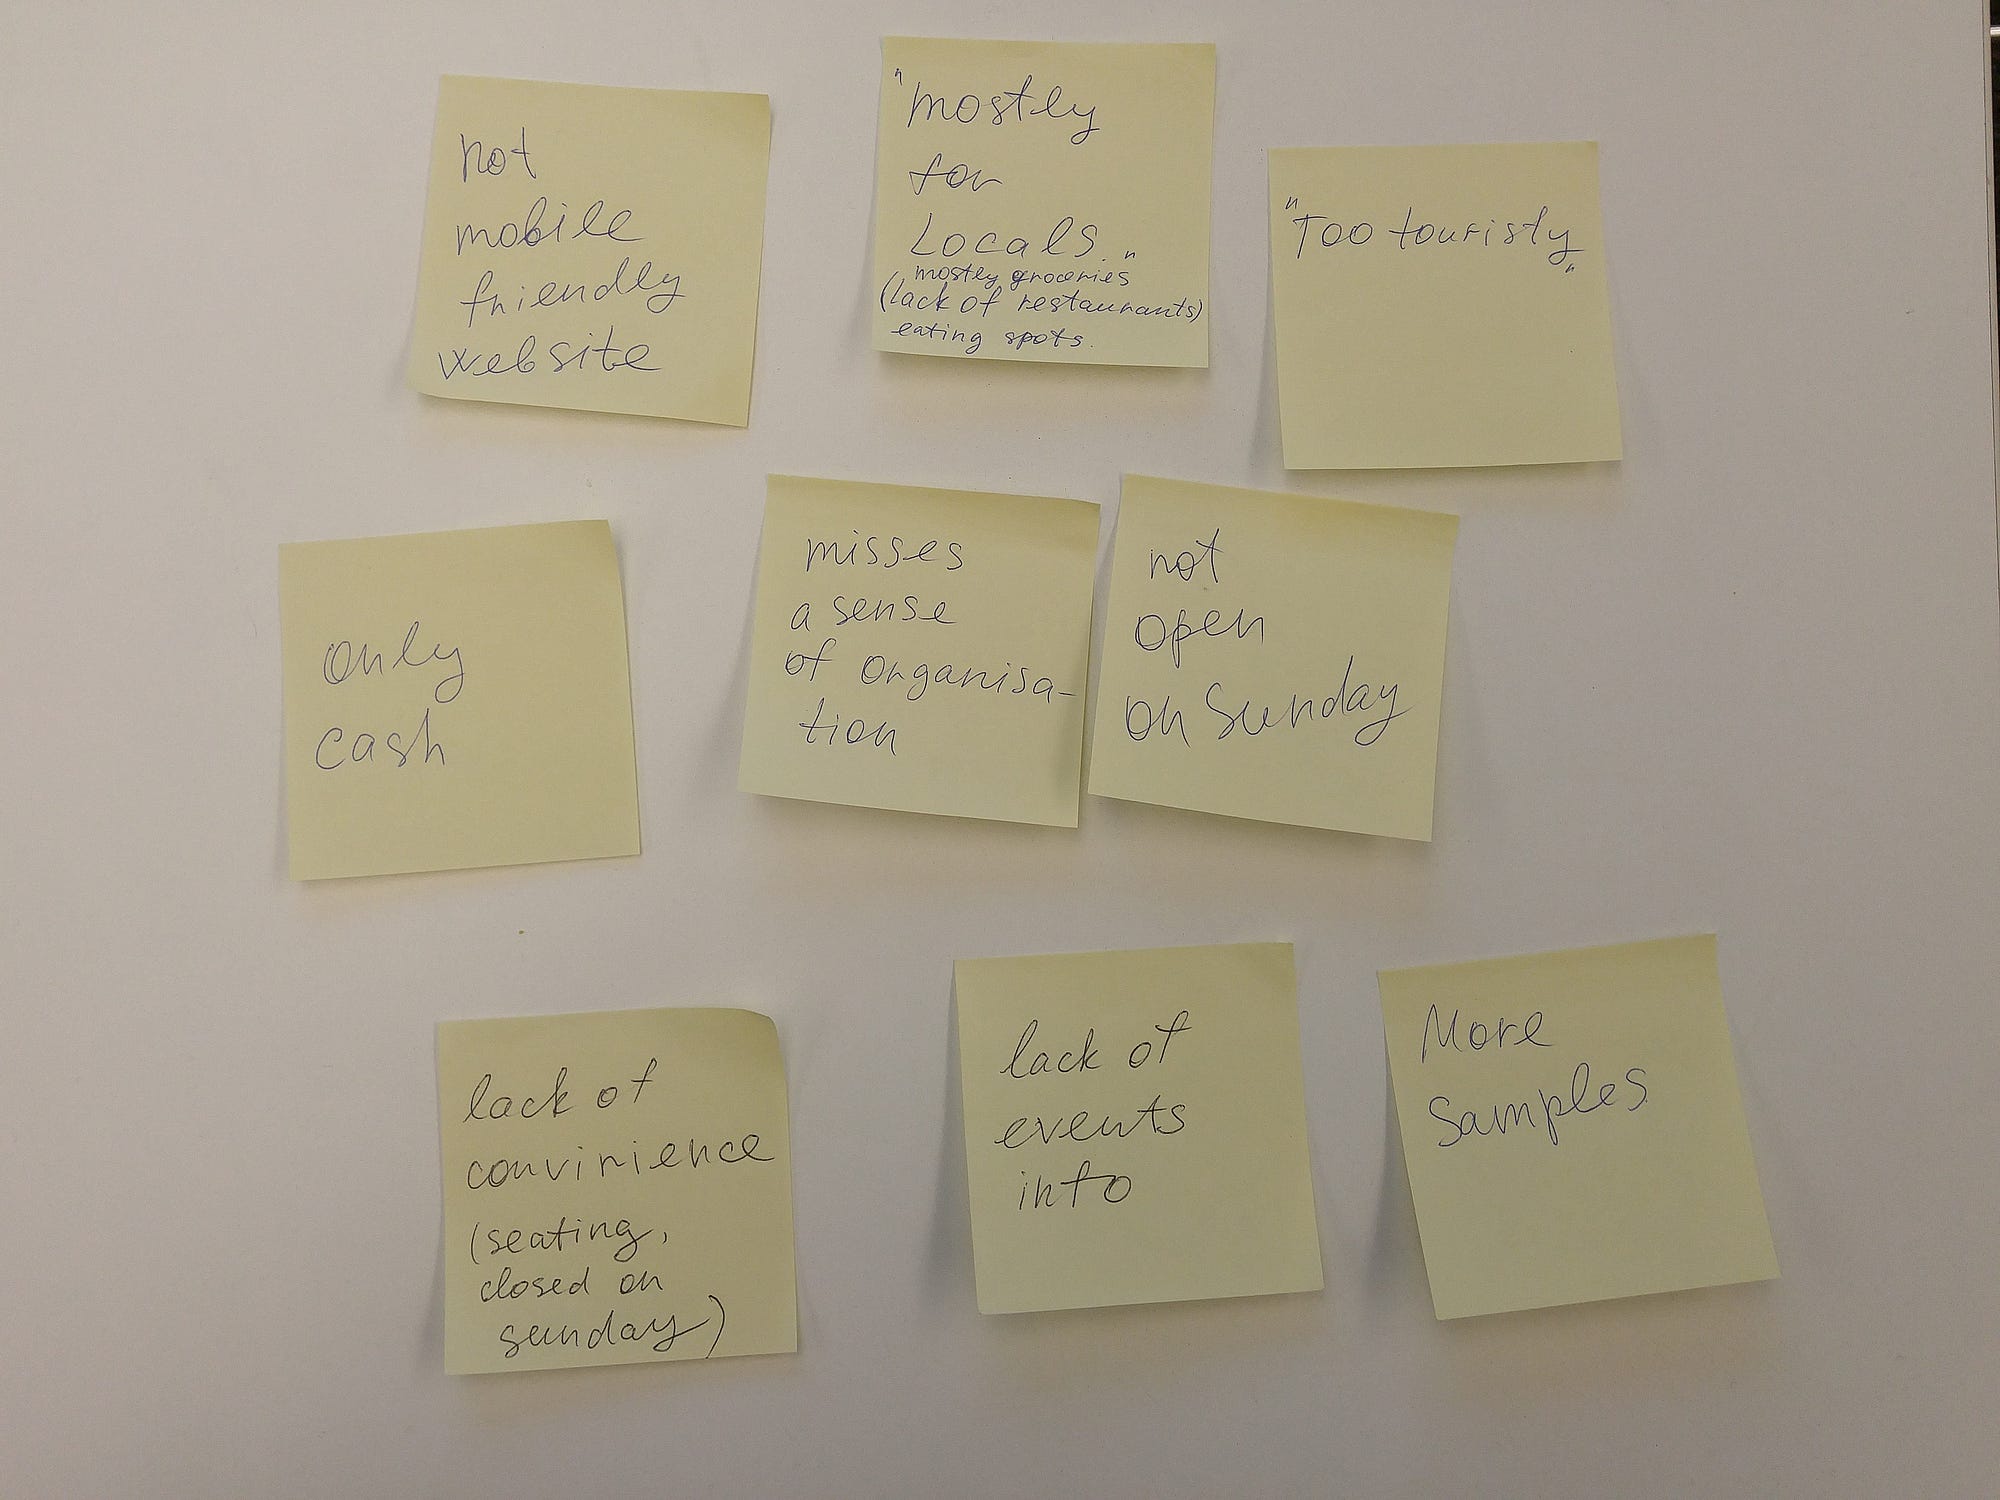 not
mobile
friendly
website
"mostly
for
Locals."
mostly groceries
(lack of restaurants)
eating spots.
"Too touristy"
only
cash
misses
a sense
of organisa-
tion
not
open
on Sunday
lack of
convinience
(seating,
closed on
sunday)
lack of
events
info
More
Samples